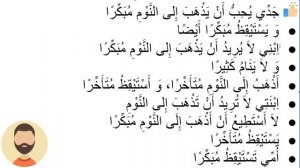 جَدِّي يُحِبُّ أَنْ يَذْهَبَ إِلَى النَّوْمِ مُبَكِّرًا
وَ يَسْتَيْقِظُ مُبَكِّرًا أَيْضًا
اِبْنِي لَا يُرِيدُ أَنْ يَذْهَبَ إِلَى النَّوْمِ مُبَكِّرًا
وَ لَا يَنَامُ كَثِيرًا
أَذْهَبُ إِلَى النَّوْمِ مُتَأَخِّرًا، وَ أَسْتَيْقِظُ مُتَأَخِّرًا
اِبْنَتِي لَا تُرِيدُ أَنْ تَذْهَبَ إِلَى النَّوْمِ
لَا أَسْتَطِيعُ أَنْ أَذْهَبَ إِلَى النَّوْمِ مُبَكِّرًا
يَسْتَيْقِظُ مُتَأَخِّرًا
أُمِّي تَسْتَيْقِظُ مُبَكِّرًا